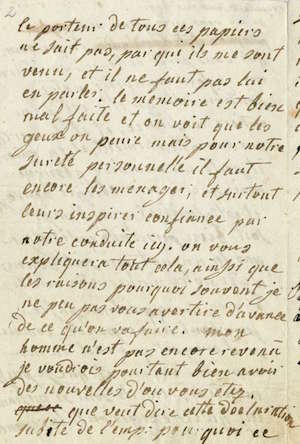 2
le porteur de tous ces papiers
ne sait pas, par qui ils me sont
venu, et il ne faut pas lui
en parler. le mémoire est bien
mal faite et on voit que les
geux on peure mais pour notre
sureté personnelle il faut
encore les menager, et surtout
leurs inspirer confiance par
notre conduite icy. on vous
expliquera tout cela, ainsi que
les raisons pourquoi souvent je
ne peu pas vous avertire d'avance
de ce qu'on va faire. mon
homme n'est pas encore revenu
je voudrois pourtant bien avoir
des nouvelles d'ou vous etez.
que veut dire cette declaration
subite de l'emp: pourquoi ce